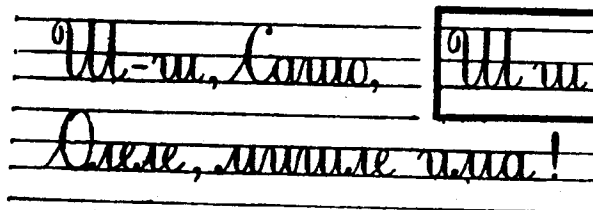 Ш-ш, Сашо, Ш ш
Олеле, мишле има!